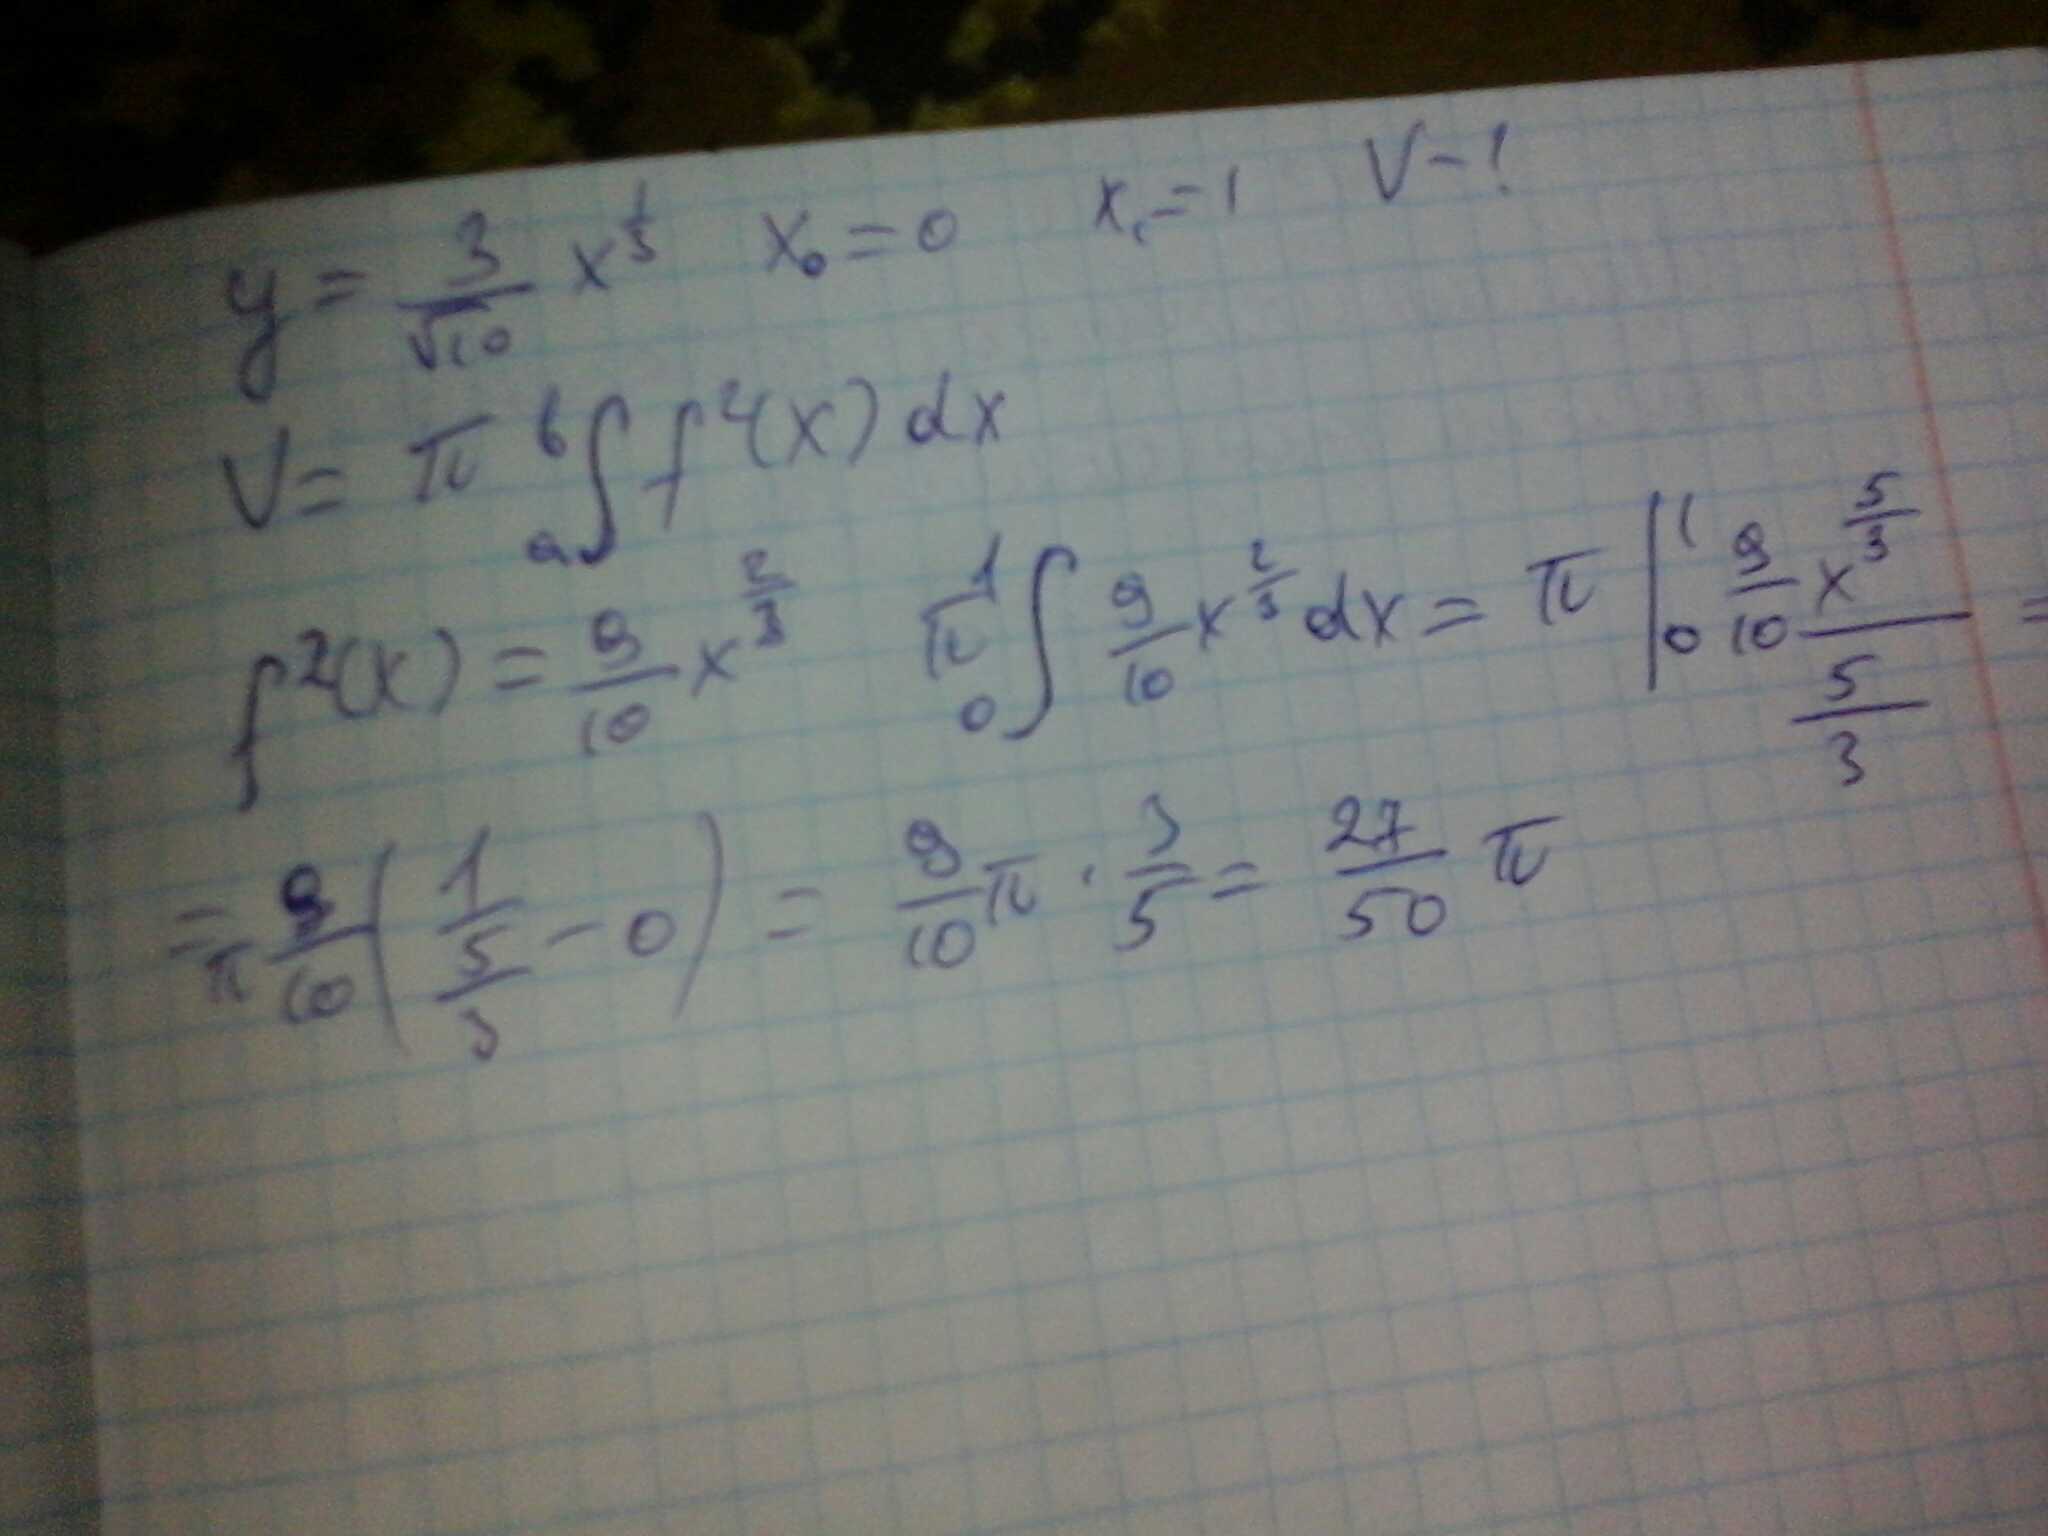 y = 3/√10 x^(1/3) x₀ = 0 x₁ = 1 V - ?
V = π ᵇ∫ₐ f²(x) dx
f²(x) = 9/10 x^(2/3) π ¹∫₀ 9/10 x^(2/3) dx = π |¹₀ 9/10 x^(5/3)/(5/3) =
= π 9/10 (1/(5/3) - 0) = 9/10 π · 3/5 = 27/50 π